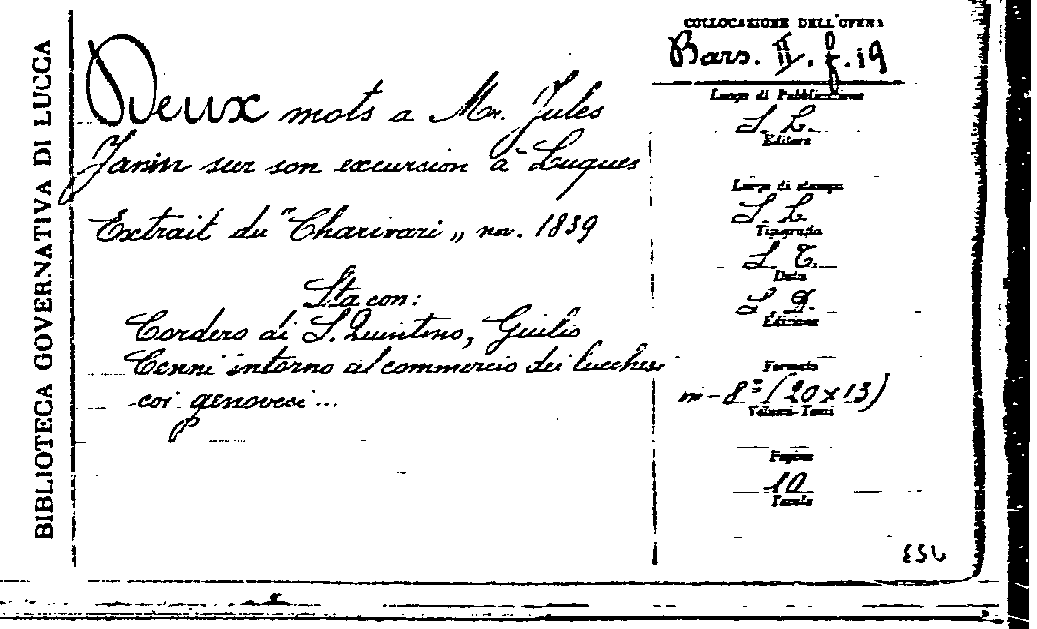 BIBLIOTECA GOVERNATIVA DI LUCCA
Deux mots a Mr. Jules
Janin sur son excursion a Luques
Extrait du "Charivari„ nn. 1839
Sta con:
Cordero di S. Quintino, Giulio
Cenni intorno al commercio dei lucchesi
coi genovesi...
COLLOCAZIONE DELL'OPERA
Bars. II. f. 19
Luogo di Pubblicazione
S. L.
Editore
Luogo di stampa
S. L.
Tipografia
S. T.
Data
S. D.
Edizione
Formato
in-8° (20x13)
Volumi-Tomi
Pagine
10
Tavole